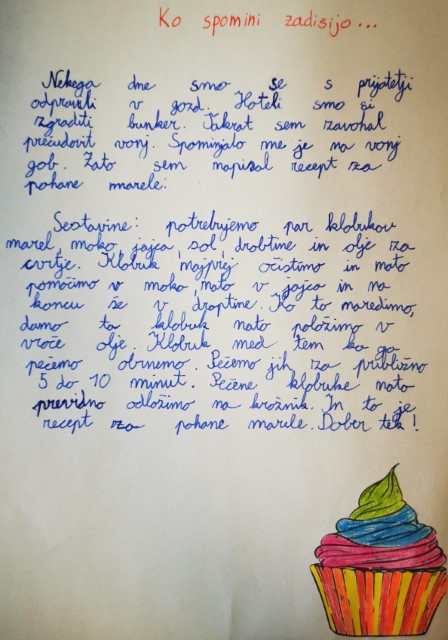 Ko spomini zadišijo...
Nekega dne smo se s prijatelji
odpravili v gozd. Hoteli smo si
zgraditi bunker. Takrat sem zavohal
prečudovit vonj. Spominjalo me je na vonj
gob. Zato sem napisal recept za
pohane marele:
Sestavine: potrebujemo par klobukov
marel, moko, jajca, sol, drobtine in olje za
cvrtje. Klobuk najprej očistimo in nato
pomočimo v moko, nato v jajca in na
koncu še v droptine. Ko to naredimo,
damo ta klobuk nato položimo v
vroče olje. Klobuk med tem ko ga
pečemo obrnemo. Pečemo jih za približno
5 do 10 minut. Pečene klobuke nato
previdno odložimo na krožnik. In to je
recept za pohane marele. Dober tek!